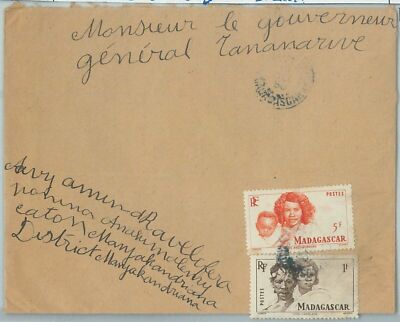 Monsieur le gouverneur
général Tananarive
Avy amin dRavelofera
canton Manjakandriana
District Manjakandriana
RF
POSTES
5F
MADAGASCAR
RF
1F
POSTES
MADAGASCAR